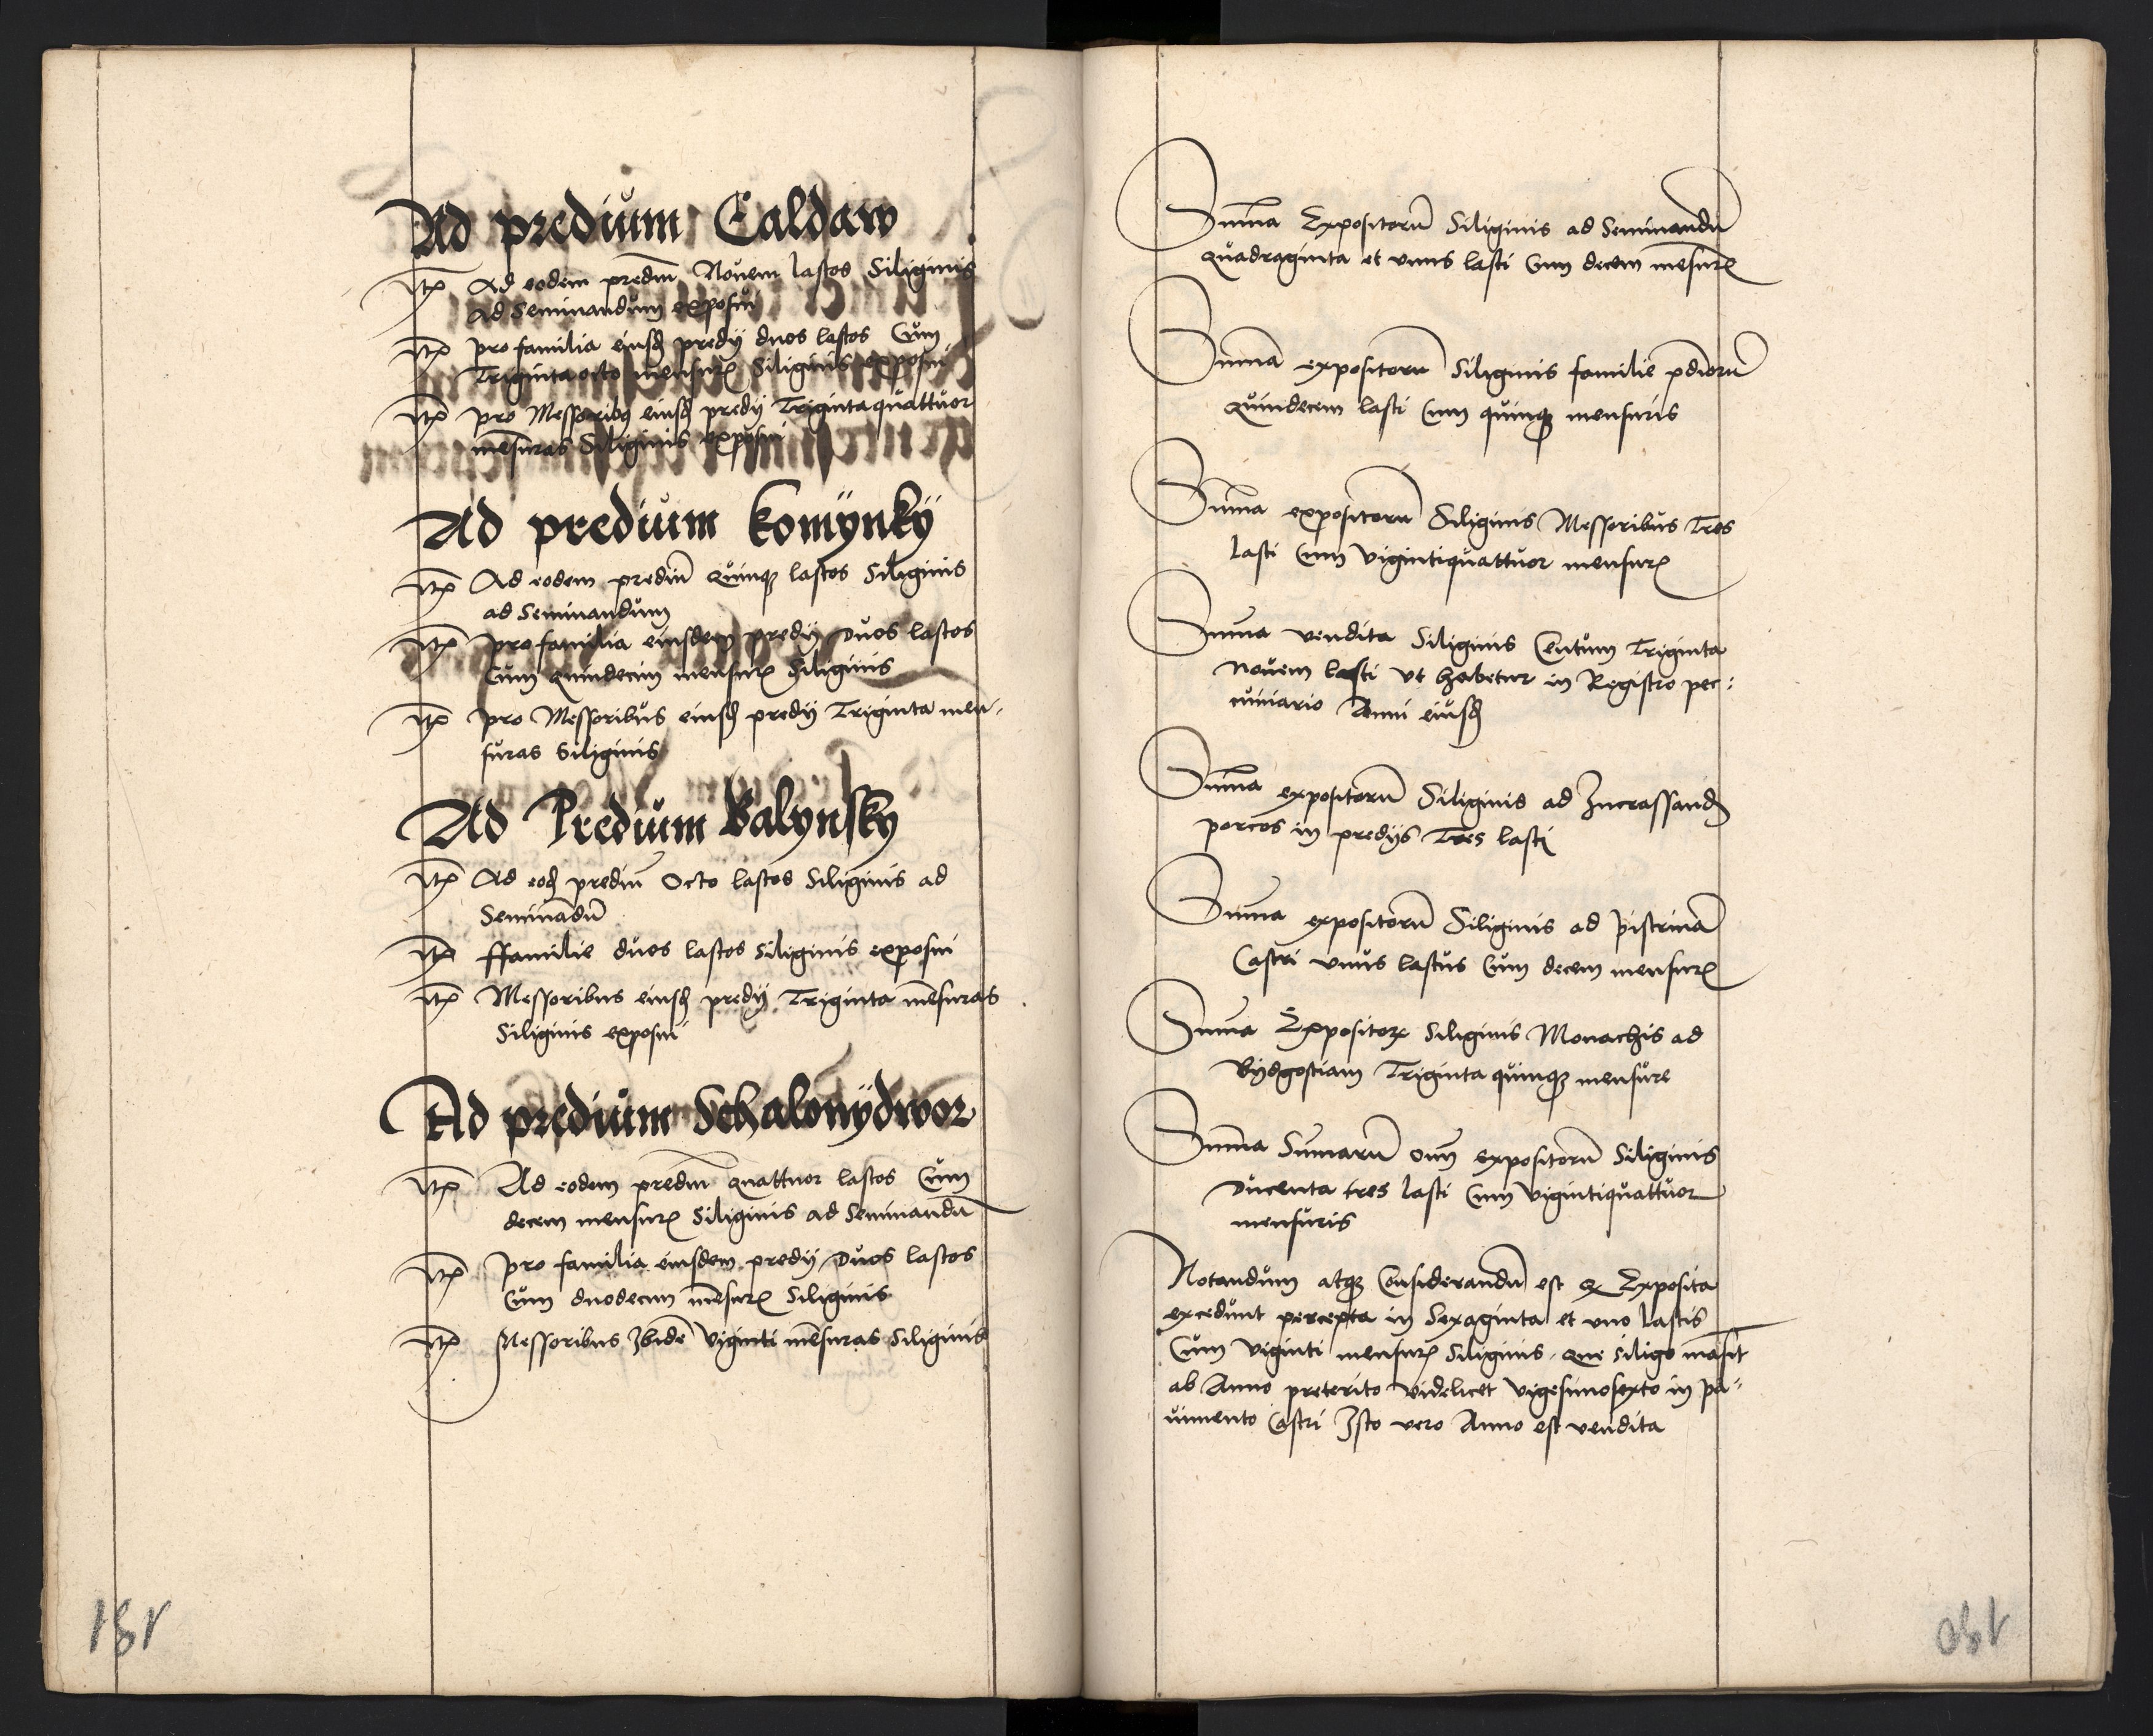 Ad predium Caldaw
Itꝫ Ad eodem prediū Nouem lastos Siliginis
ad Seminandum exposui
Itꝫ pro familia eiusd predij duos lastos Cum
Triginta octo mensurꝫ Siliginis exposui
Itꝫ pro Messoribꝰ eiusd predij Trigintaquattuor
mēsuras Siliginis exposui
Ad predium komÿnkÿ
Itꝫ Ad eodem prediū quinqꝫ lastos Siliginis
ad Seminandum
Itꝫ pro familia eiusdem predij Duos lastos
Cum quindecim mensurꝫ Siliginis
Itꝫ pro Messoribus eiusd predij Triginta men-
suras Siliginis
Ad Predium Balynsky
Itꝫ Ad eod prediū Octo lastos Siliginis ad
Seminādū
Itꝫ ffamilie duos lastos Siliginis exposui
Itꝫ Messoribus eiusd predij Triginta mēsuras
Siliginis exposui
Ad predium Schalonÿdwor
Itꝫ Ad eodem prediū quattuor lastos Cum
decem mensurꝫ Siliginis ad Seminandū
Itꝫ pro familia eiusdem predij Duos lastos
Cum duodecim mēsurꝫ Siliginis
Itꝫ Messoribus Ibidē Viginti mēsuras Siliginis
181
Sum̄a Expositorū Siliginis ad Seminandū
quadraginta et vnus lasti Cum decem mēsurꝫ
Sum̄a expositorū Siliginis familie p̄diorū
quindecem lasti Cum quinqꝫ mensuris
Sum̄a expositorū Siliginis Messoribus Tres
lasti Cum Vigintiquattuor mensurꝫ
Sum̄a vendita Siliginis Centum Triginta
Nouem lasti vt habetur in Registro pec-
cuniario Anni eiusd
Sum̄a expositorū Siliginis ad Incrassand
porcos in predijs Tres lasti
Sum̄a expositorū Siliginis ad pistrinā
Castri vnus lastus Cum decem mensurꝫ
Sum̄a Expositoꝝ Siliginis Monachis ad
Bydgostiam Triginta quinqꝫ mensure
Sum̄a Sum̄arū om̄ expositorū Siliginis
Ducenta tres lasti Cum vigintiquattuor
mensuris
Notandum atqꝫ Considerandū est qꝫ Exposita
excedunt percepta in Sexaginta et vno lastis
Cum Viginti mensurꝫ Siliginis. que Siligo māsit
ab Anno preterito videlicet vigesimosexto in pa-
uimento Castri Isto vero Anno est vendita
180